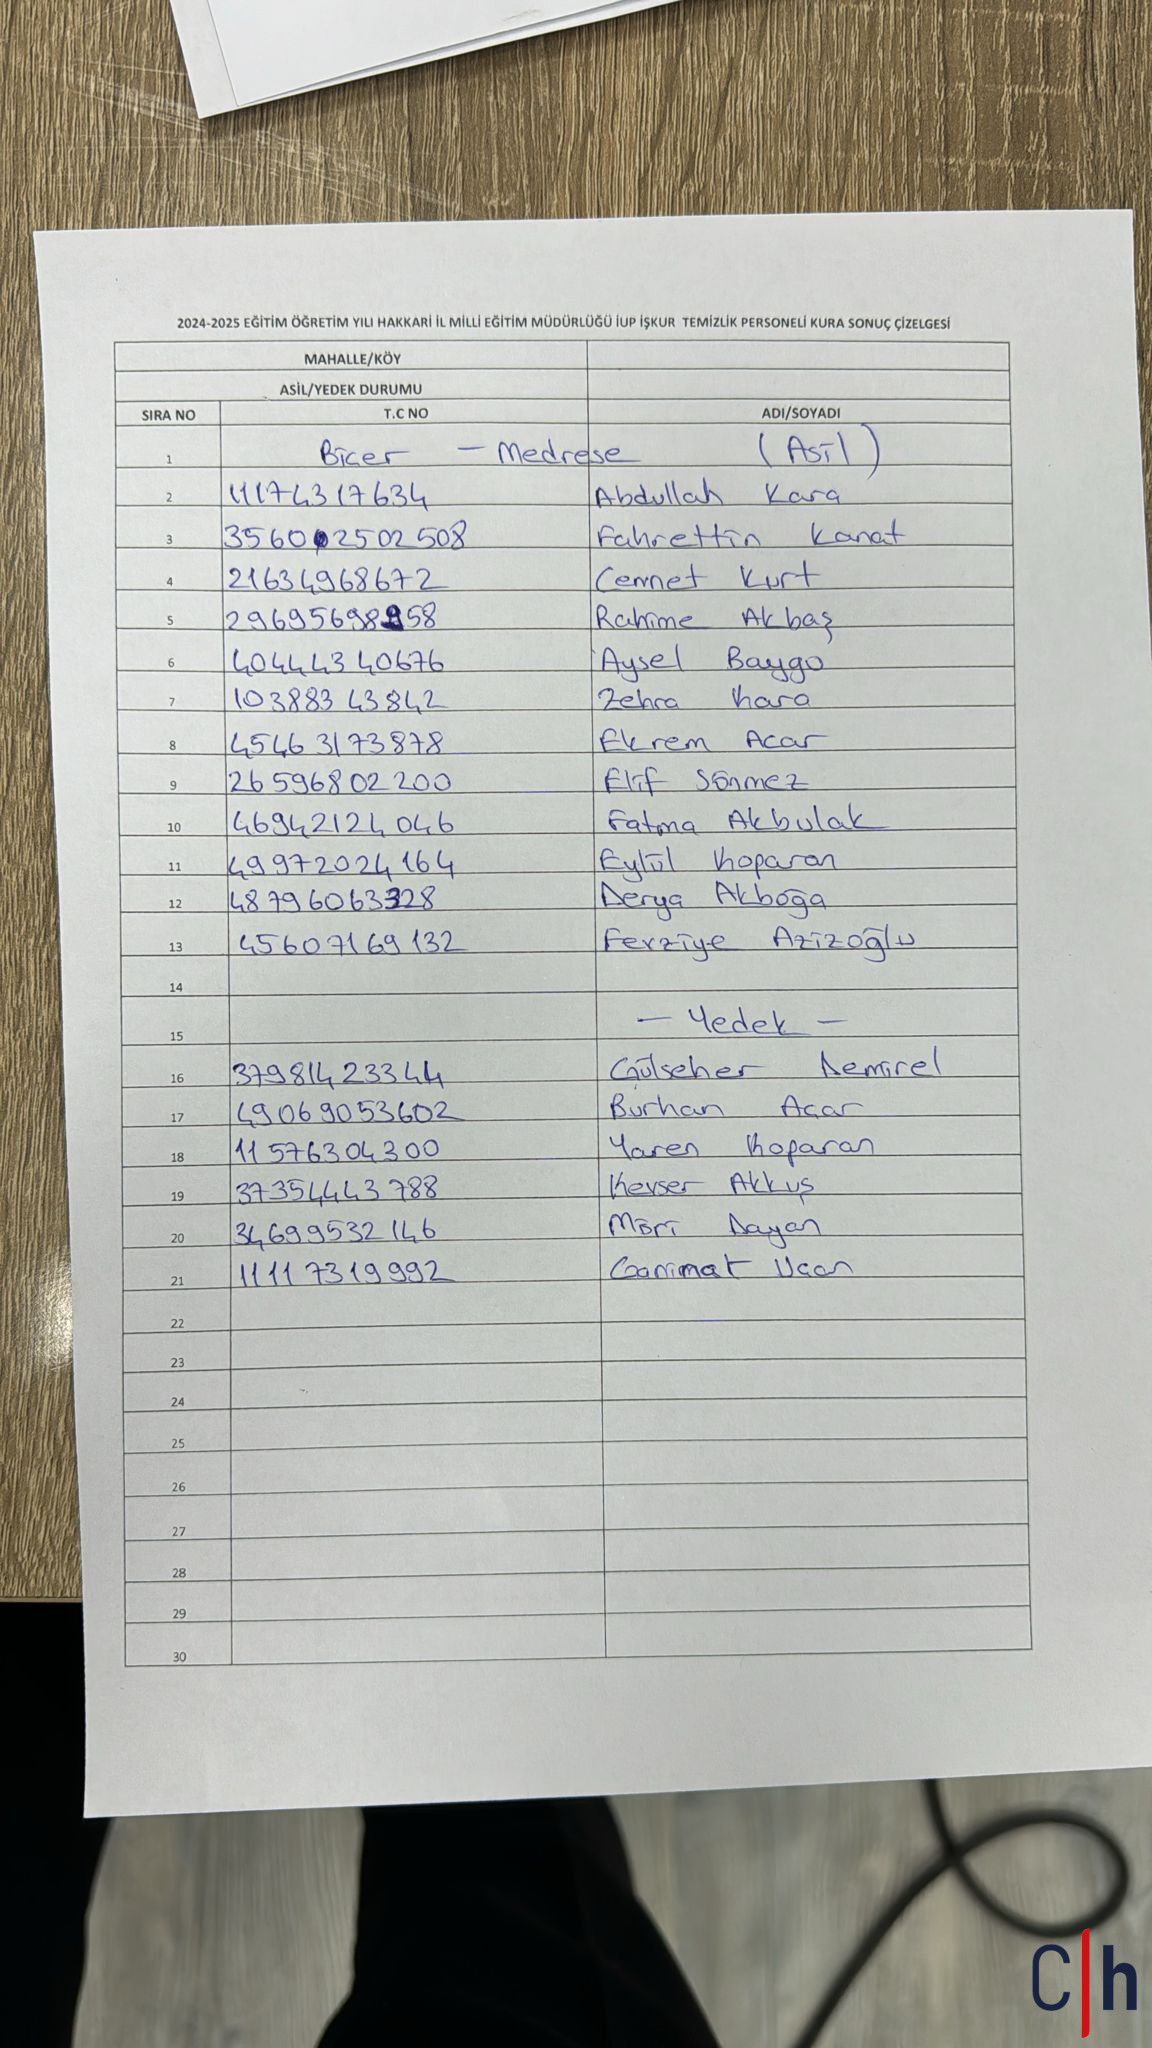 2024-2025 EĞİTİM ÖĞRETİM YILI HAKKARİ İL MİLLİ EĞİTİM MÜDÜRLÜĞÜ İUP İŞKUR TEMİZLİK PERSONELİ KURA SONUÇ ÇİZELGESİ
MAHALLE/KÖY
ASİL/YEDEK DURUMU
SIRA NO T.C NO ADI/SOYADI
1 Biçer - Medrese (Asil)
2 11174317634 Abdullah Kara
3 35602502508 Fahrettin Kanat
4 21634968672 Cennet Kurt
5 29695698958 Rahime Akbaş
6 40444340676 Aysel Baygo
7 10388343842 Zehra Kara
8 45463173878 Ekrem Acar
9 26596802200 Elif Sönmez
10 46942124046 Fatma Akbulak
11 49972024164 Eylül Koparan
12 48796063328 Derya Akboğa
13 45607169132 Fevziye Azizoğlu
14
15 - Yedek -
16 37981423344 Gülseher Demirel
17 49069053602 Burhan Acar
18 11576304300 Yaren Koparan
19 37354443788 Kevser Akkuş
20 34699532146 Möri Dayan
21 11117319992 Ganimat Ucan
22
23
24
25
26
27
28
29
30
C|h